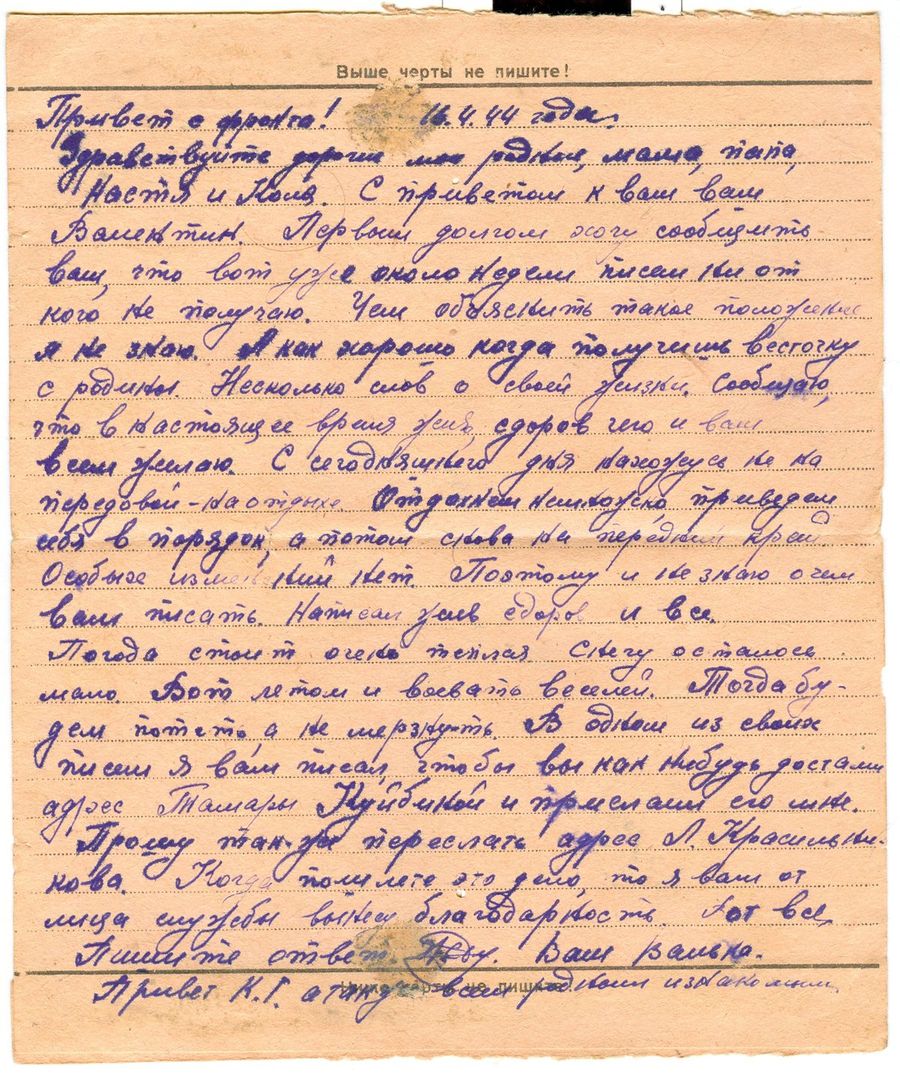 Выше черты не пишите!
Привет с фронта! 16.4.44 года.
Здравствуйте дорогие мои родные, мама, папа,
Настя и Коля. С приветом к вам ваш
Валентин. Первым долгом хочу сообщить
вам, что вот уже около недели писем ни от
кого не получаю. Чем объяснить такое положение
я не знаю. А как хорошо когда получишь весточку
с родины. Несколько слов о своей жизни. Сообщаю,
что в настоящее время жив, здоров чего и вам
всем желаю. С сегодняшнего дня нахожусь не на
передовой - на отдыхе. Отдохнем немножко, приведем
себя в порядок, а потом снова на передний край.
Особых изменений нет. Поэтому и не знаю о чем
вам писать. Написал жив здоров и все.
Погода стоит очень теплая. Снегу осталось
мало. Вот летом и воевать веселей. Тогда бу-
дем потеть, а не мерзнуть. В одном из своих
писем я вам писал, чтобы вы как нибудь достали
адрес Тамары и прислали его мне.
Прошу так-же переслать адрес Л. Красильни-
кова. Когда пошлете это дело, то я вам от
лица службы вынесу благодарность. Вот все
Пишите ответ. Жду. Ваш Валька.
Привет К.Г. а также всем родным и знакомым.
Ниже черты не пишите!